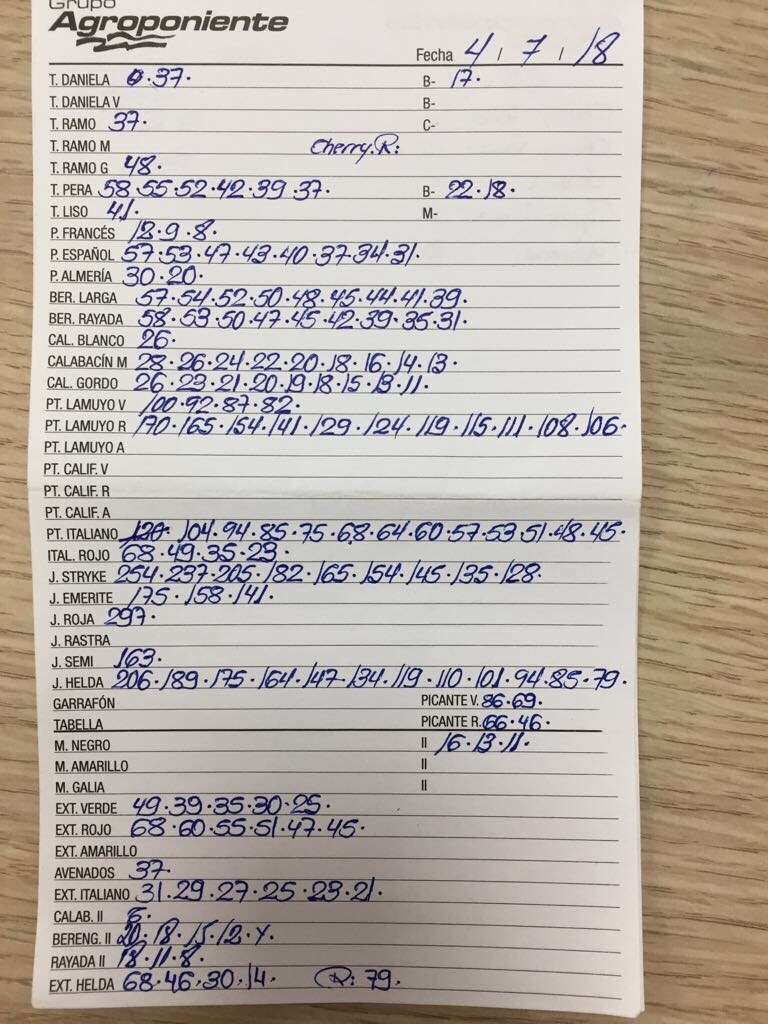 Grupo
Agroponiente
Fecha 4 / 7 / 18
T. DANIELA 37. B- 17.
T. DANIELA V B-
T. RAMO 37. C-
T. RAMO M Cherry.R:
T. RAMO G 48.
T. PERA 58 55.52.42.39.37. B- 22.18.
T. LISO 41. M-
P. FRANCÉS 12.9.8.
P. ESPAÑOL 57.53.47.43.40.37.34.31.
P. ALMERÍA 30.20.
BER. LARGA 57.54.52.50.48.45.44.41.39.
BER. RAYADA 58.53.50.47.45.42.39.35.31.
CAL. BLANCO 26.
CALABACÍN M 28.26.24.22.20.18.16.14.13.
CAL. GORDO 26.23.21.20.19.18.15.13.11.
PT. LAMUYO V 100.92.87.82.
PT. LAMUYO R 170.165.154.141.129.124.119.115.111.108.106.
PT. LAMUYO A
PT. CALIF. V
PT. CALIF. R
PT. CALIF. A
PT. ITALIANO 120 104.94.85.75.68.64.60.57.53.51.48.45.
ITAL. ROJO 68.49.35.23.
J. STRYKE 254.237.205.182.165.154.145.135.128.
J. EMERITE 175.158.141.
J. ROJA 297.
J. RASTRA
J. SEMI 163.
J. HELDA 206.189.175.164.147.134.119.110.101.94.85.79.
GARRAFÓN PICANTE V. 86.69.
TABELLA PICANTE R. 66.46.
M. NEGRO II 16.13.11.
M. AMARILLO II
M. GALIA II
EXT. VERDE 49.39.35.30.25.
EXT. ROJO 68.60.55.51.47.45.
EXT. AMARILLO
AVENADOS 37.
EXT. ITALIANO 31.29.27.25.23.21.
CALAB. II 5.
BERENG. II 20.18.15.12.Y.
RAYADA II 18.11.8.
EXT. HELDA 68.46.30.14. R: 79.